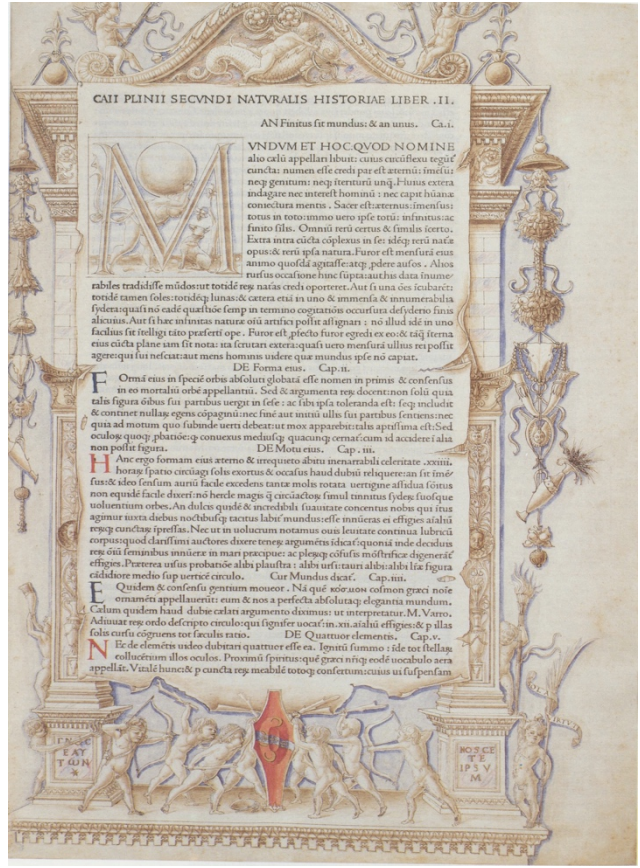 CAII PLINII SECVNDI NATVRALIS HISTORIAE LIBER .II.
AN Finitus sit mundus: & an unus. Ca.i.
MVNDVM ET HOC.QVOD NOMINE
alio cælū appellari libuit: cuius circūflexu tegūt̄
cuncta: numen esse credi par est æternū: īmēsū:
neq; genitum: neq; īteriturū unq̄. Huius extera
indagare nec interest hominū : nec capit hūanæ
coniectura mentis . Sacer est: æternus: īmensus:
totus in toto: immo uero ipse totū: infinitus: ac
finito similis. Omniū rerū certus & similis īcerto.
Extra intra cūcta cōplexus in se: idēq; rerū naturæ
opus: & rerū ipsa natura. Furor est mensurā eius
animo quosdā agitasse: atq; ,pdere ausos . Alios
rursus occasione hinc sūpta: aut his data īnume-
rabiles tradidisse mūdos: ut totidē reꝝ naturas credi oporteret. Aut si una ōes īcubaret:
totidē tamen soles: totidēq; lunas: & cætera etiā in uno & immensa & innumerabilia
sydera: quasi nō eadē quæstiōe semp in termino cogitatiōis occursura desyderio finis
alicuius. Aut si hæc infinitas naturæ oīū artifici possit assignari : nō illud idē in uno
facilius sit ītelligi tāto præsertī ope . Furor est ,pfecto furor egredi ex eo: & tāq̄ īterna
eius cūcta plane iam sit nota: ita scrutari extera: quasi uero mensurā ullius rei possit
agere: qui sui nesciat: aut mens hominis uidere quæ mundus ipse nō capiat.
DE Forma eius. Cap.ii.
FOrmā eius in speciē orbis absoluti globatā esse nomen in primis & consensus
in eo mortaliū orbē appellantiū. Sed & argumenta reꝝ docent: non solū quia
talis figura ōibus sui partibus uergit in sese : ac sibi ipsa toleranda est: seq; includit
& continet nullaꝝ egens cōpaginū: nec finē aut initiū ullis sui partibus sentiens: nec
quia ad motum quo subinde uerti debeat: ut mox apparebit: talis aptissima est: Sed
oculoꝝ quoq; ,pbatiōe: q; conuexus mediusq; quacunq; cernat̄: cum id accidere ī alia
non possit figura. DE Motu eius. Cap. iii.
HAnc ergo formam eius æterno & irrequieto ābitu inenarrabili celeritate .xxiiii.
horaꝝ spatio circūagi solis exortus & occasus haud dubiū relquere: an sit īmē
sus: & ideo sensum auriū facile excedens tantæ molis rotatæ uertigine assidua sōitus
non equidē facile dixerī: nō hercle magis q̄ circūactoꝝ simul tinnitus sydeꝝ suosque
uoluentium orbes. An dulcis quidē & incredibili suauitate concentus nobis qui ītus
agimur iuxta diebus noctibusq; tacitus labit̄ mundus: esse innūeras ei effigies aīaliū
reꝝq; cunctaꝝ īpressas. Nec ut in uolucrum notamus ouis leuitate continua lubricū
corpus: quod clarissimi auctores dixere teneꝝ argumētis īdicat̄: quoniā inde deciduis
reꝝ oīū seminibus innūeræ in mari præcipue: ac pleꝝq; cōfusis mōstrificæ digenerāt̄
effigies. Præterea uisus probatiōe alibi plaustra : alibi ursi: tauri alibi: alibi līæ figura
cādidiore medio sup uerticē circulo. Cur Mundus dicat̄. Cap.iiii.
EQuidem & consensu gentium moueor . Nā quē κόσμον cosmon græci noīe
ornamēti appellauerūt: eum & nos a perfecta absolutaq; elegantia mundum.
Cælum quidem haud dubie cælati argumento diximus: ut interpretatur. M. Varro.
Adiuuat reꝝ ordo descripto circulo: qui signifer uocat̄: in .xii. aīaliū effigies: & p illas
solis cursu cōgruens tot sæculis ratio. DE Quattuor elementis. Cap.v.
NEc de elemētis uideo dubitari quattuor esse ea. Ignitū summo : īde tot stellaꝝ
collucētium illos oculos. Proximū spiritus: quē græci nr̄iq; eodē uocabulo aera
appellāt. Vitalē hunc: & p cuncta reꝝ meabilē totoq; consertum: cuius ui suspensam
NOSCE
TE
IPSV
M